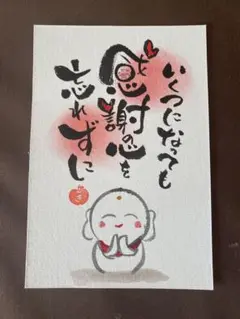 いくつになっても
感謝の心を
忘れずに